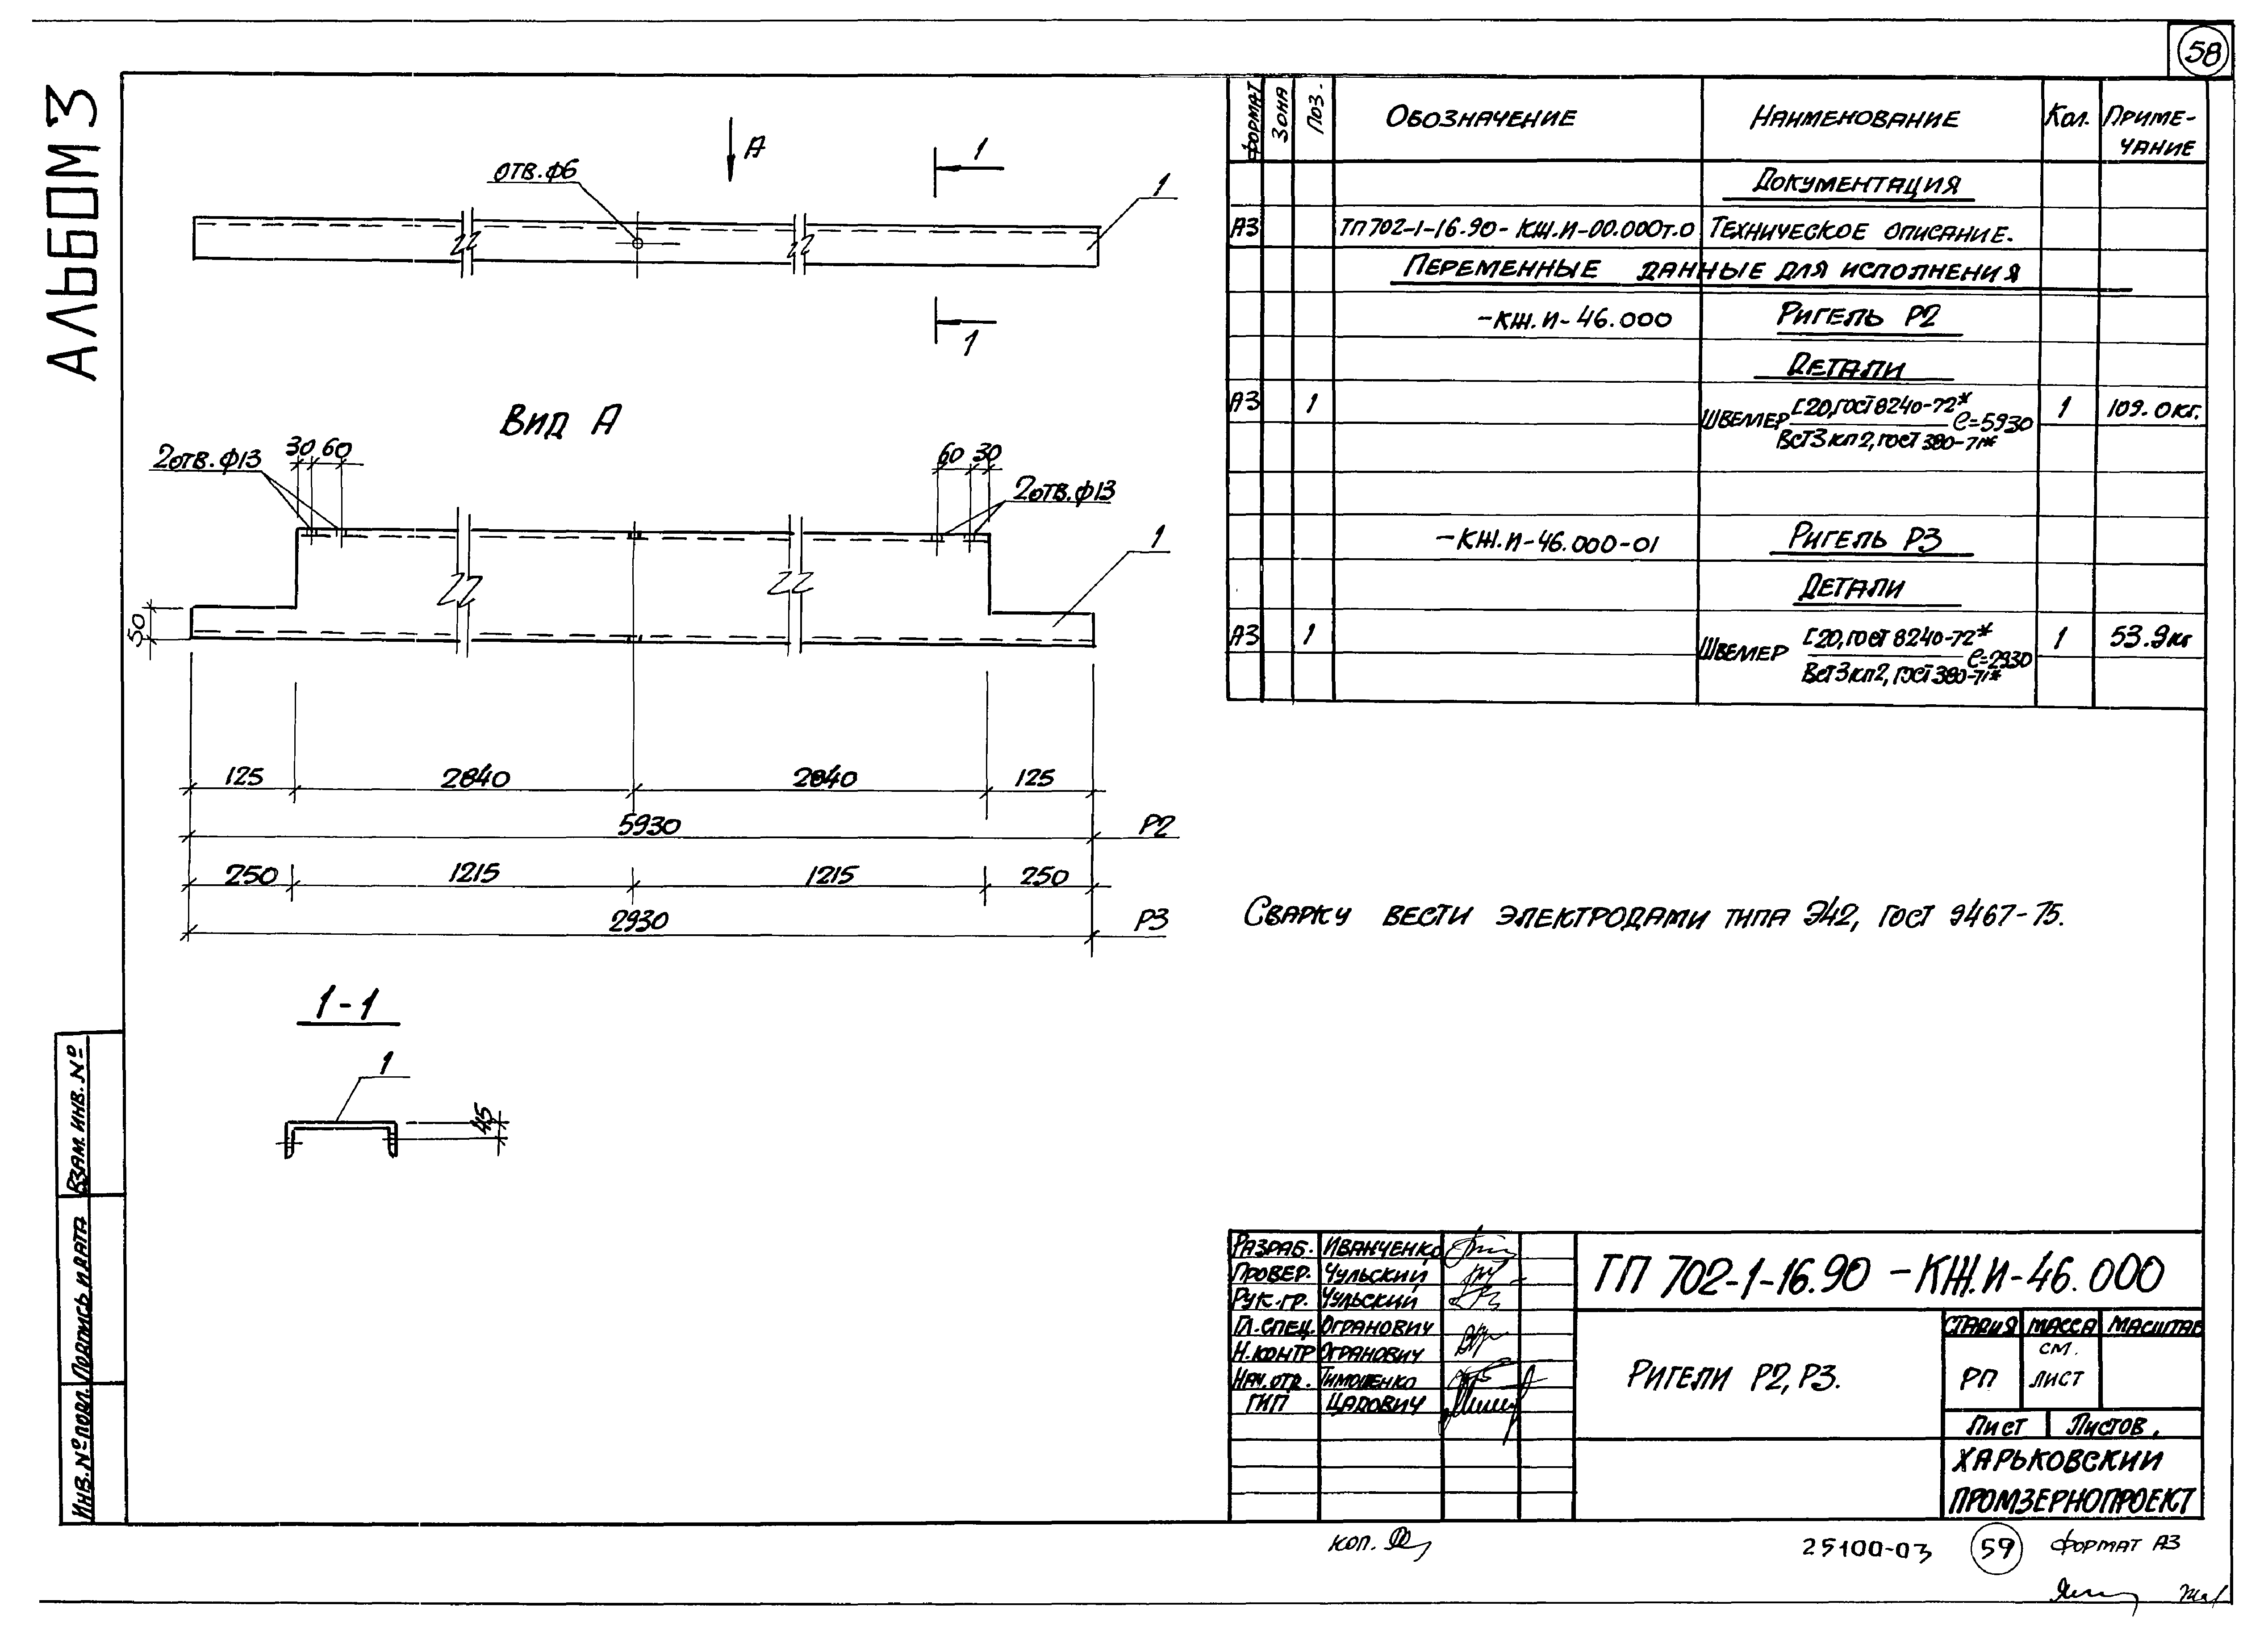 58
АЛЬБОМ 3
отв. ф6
А
1
1
1
Вид А
2отв. ф13
30 60
60 30
2отв. ф13
1
50
125 2840 2840 125
5930 Р2
250 1215 1215 250
2930 Р3
1-1
1
45
Формат Зона Поз. Обозначение Наименование Кол. Приме-
чание
Документация
А3 ТП 702-1-16.90-КЖ.И-00.000т.о Техническое описание.
Переменные данные для исполнения
-КЖ.И-46.000 Ригель Р2
Детали
А3 1 Швеллер [20, ГОСТ 8240-72* ℓ=5930 1 109.0кг.
ВСт3кп2, ГОСТ 380-71*
-КЖ.И-46.000-01 Ригель Р3
Детали
А3 1 Швеллер [20, ГОСТ 8240-72* ℓ=2930 1 53.9кг
ВСт3кп2, ГОСТ 380-71*
Сварку вести электродами типа Э42, ГОСТ 9467-75.
Взам. инв. №
Подпись и дата
Инв. № подл.
Разраб. Иванченко
Провер. Чульский
Рук. гр. Чульский
Гл. спец. Огранович
Н. контр Огранович
Нач. отд. Тимошенко
ГИП Цадович
ТП 702-1-16.90 -КЖ.И-46.000
Ригели Р2, Р3.
Стадия Масса Масштаб
РП см.
лист
Лист Листов
Харьковский
Промзернопроект
коп.
25100-03 59 Формат А3